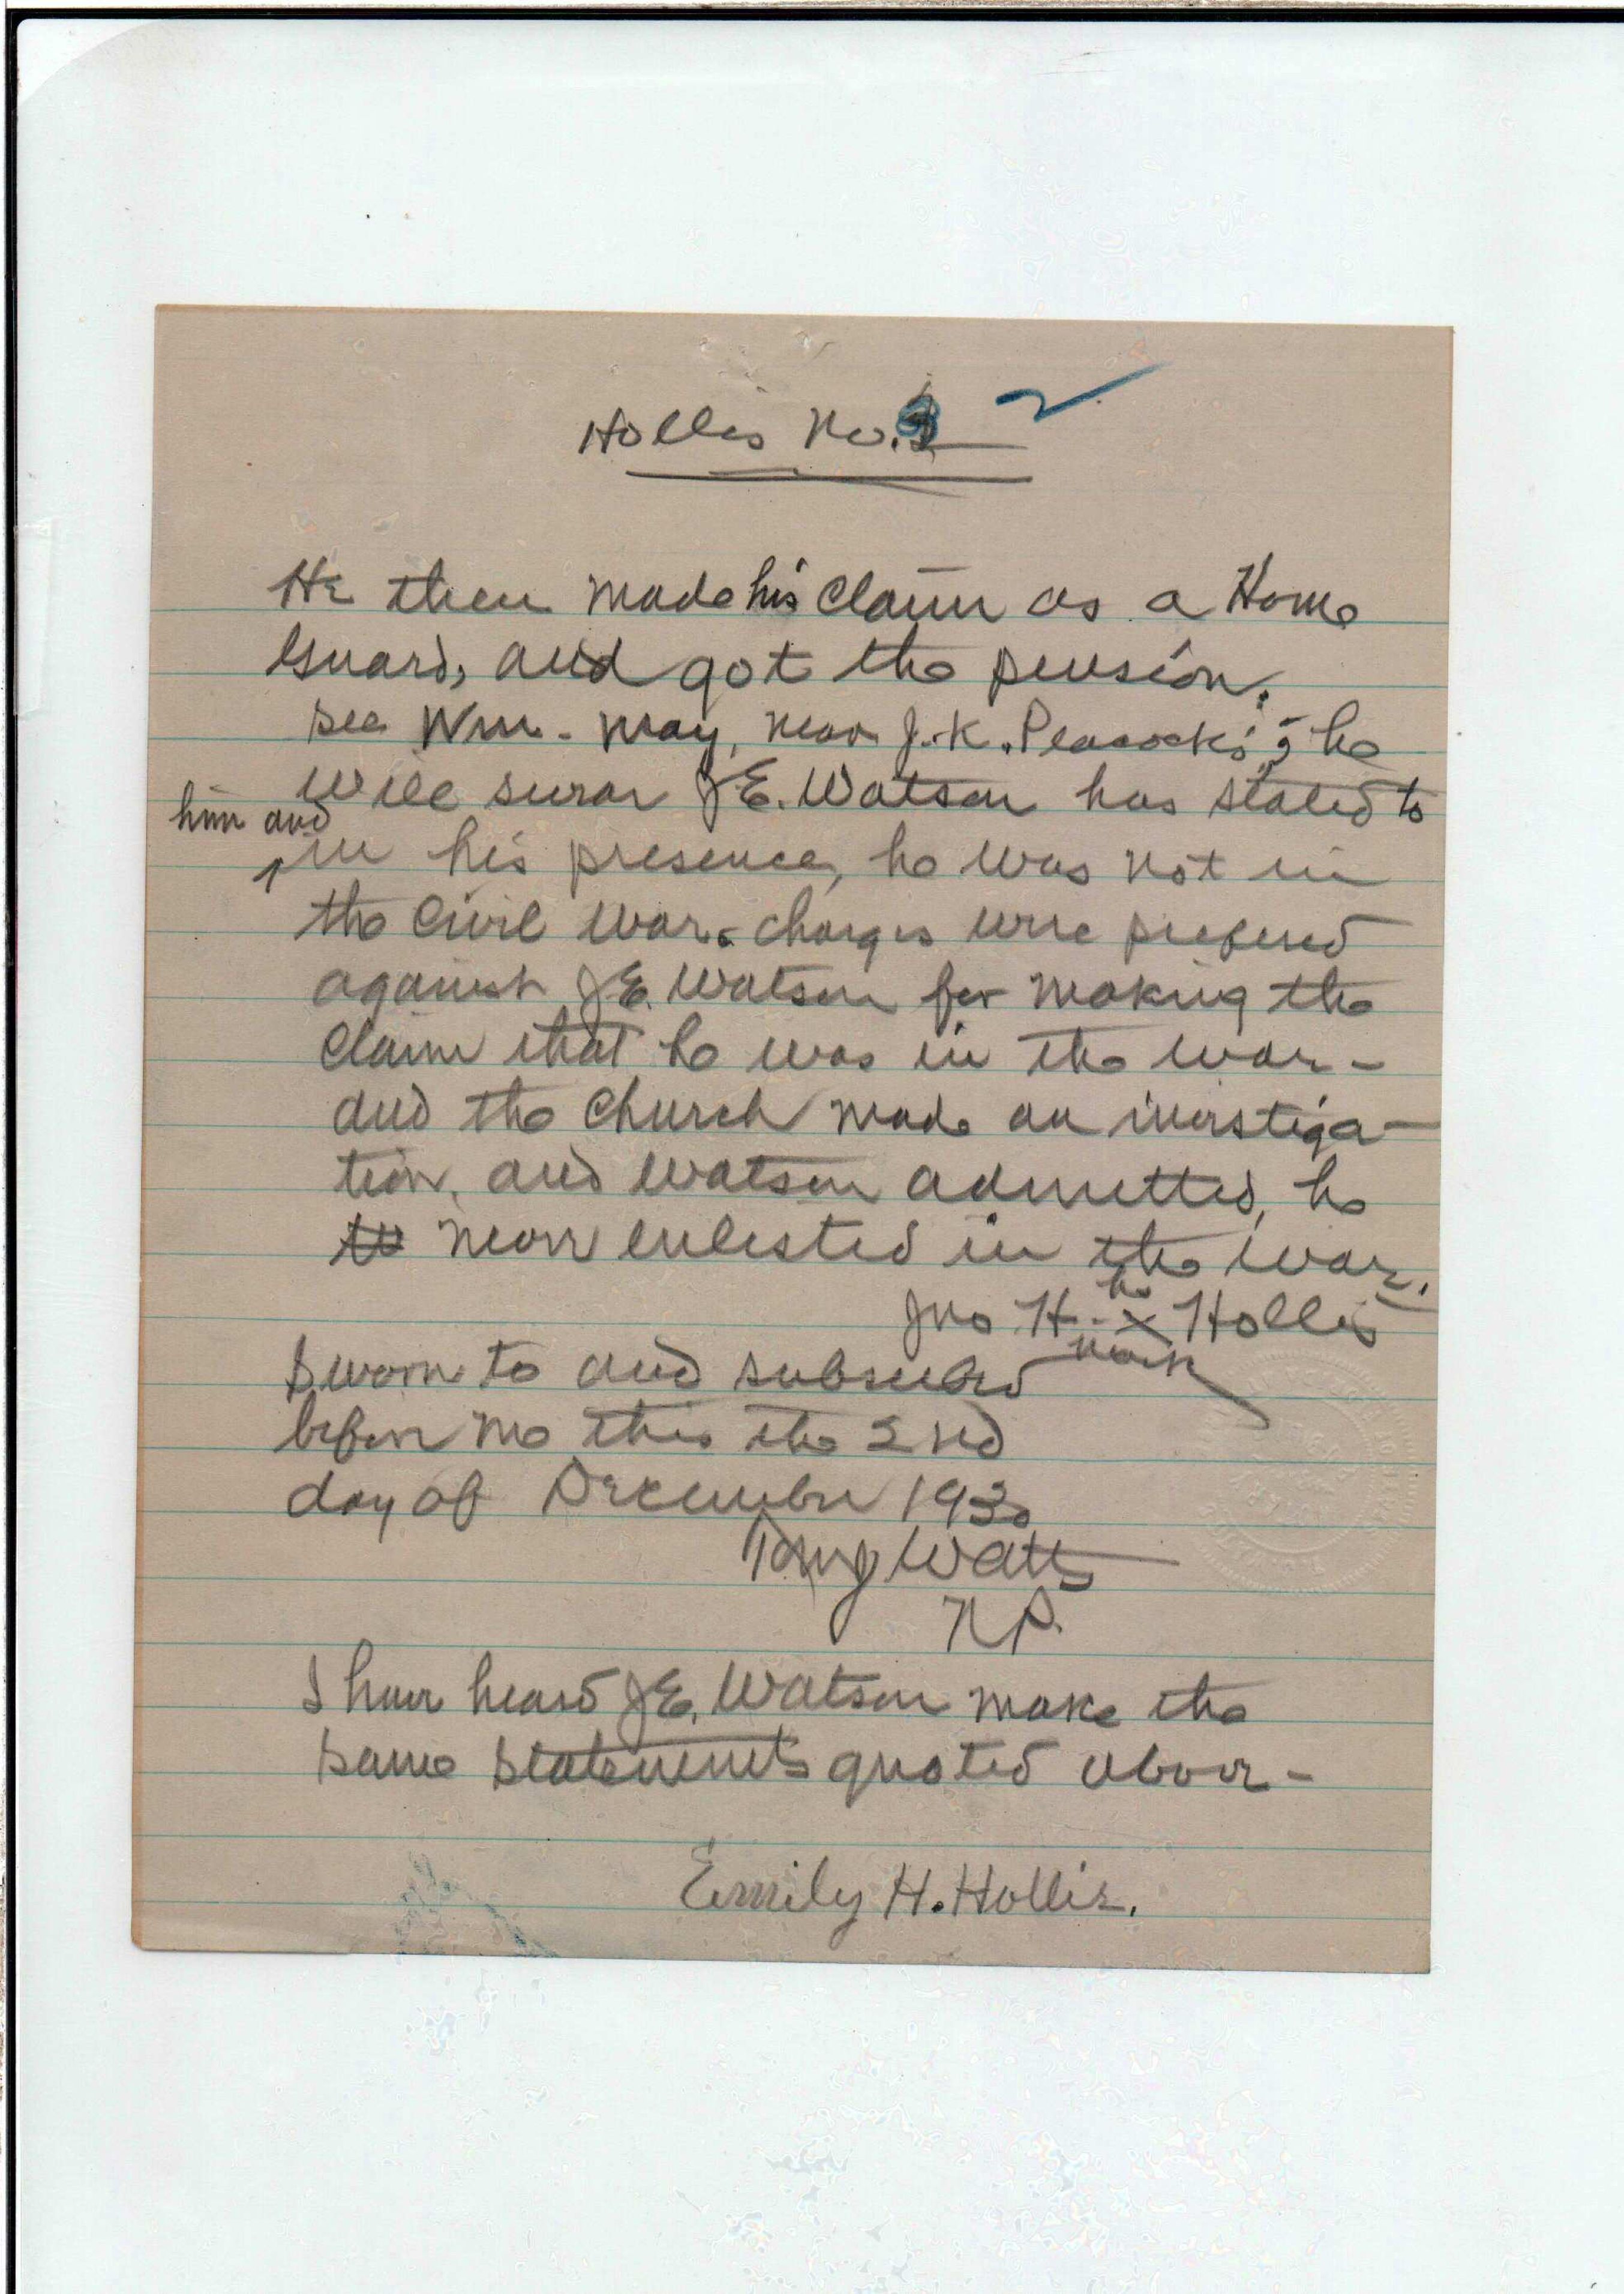 Hollis No. 2
He then made his claim as a Home
Guard, and got the pension.
See Wm. May, near J.K. Peacock's, he
will swear J.E. Watson has stated to
him and
in his presence, he was not in
the Civil War. Charges were prefered
against J.E. Watson for making the
claim that he was in the war -
and the Church made an investiga-
tion, and Watson admitted, he
never enlisted in the war.
his
Jno H. X Hollis
mark
Sworn to and subscribed
before me this the 2nd
day of December 1930
Watts
N.P.
I have heard J.E. Watson make the
same statements quoted above -
Emily H. Hollis.